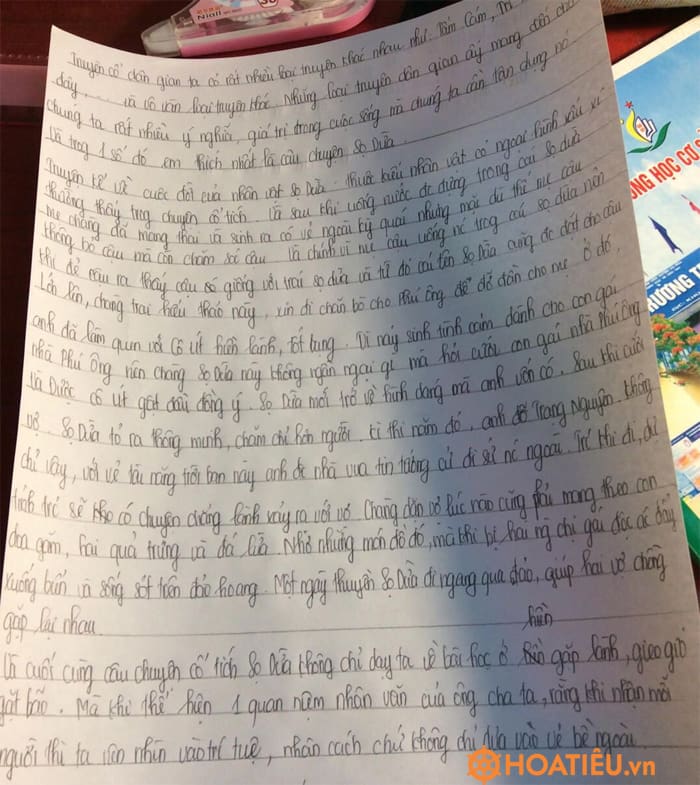 Niall
Truyện cổ dân gian ta có rất nhiều loại truyện khác nhau như: Tấm Cám, Trí
dây,... và vô vàn loại truyện khác. Những loại truyện dân gian ấy mang đến cho
chúng ta rất nhiều ý nghĩa, giá trị trong cuộc sống mà chúng ta cần tận dụng nó
và trog 1 số đó em thích nhất là câu chuyện Sọ Dừa.
Truyện kể về cuộc đời của nhân vật Sọ Dừa. Thuộc kiểu nhân vật có ngoại hình xấu xí
thường thấy trog chuyện cổ tích. Và sau khi uống nước đc đựng trong cái sọ dừa
mẹ chàng đã mang thai và sinh ra có vẻ ngoài kỳ quái nhưng mai dù thế mẹ cậu
không bỏ cậu mà còn chăm sóc cậu và chính vì mẹ cậu uống nc trog cái sọ dừa nên
khi đẻ cậu ra thấy cậu số giống với trái sọ dừa và từ đó cái tên Sọ Dừa cũng đc đặt cho cậu
Lớn lên, chàng trai hiếu thảo này, xin đi chăn bò cho Phú ông để đỡ đần cho mẹ ở đó,
anh đã làm quen với cô út hiền lành, tốt bụng. Dĩ nảy sinh tình cảm dành cho con gái
nhà Phú Ông nên chàng Sọ Dừa này không ngần ngại gt mà hỏi cưới con gái nhà Phú Ông
và Được cô út gật đầu đồng ý. Sọ Dừa mới trở về hình dáng mà anh vốn có. Sau khi cưới
vợ. Sọ Dừa tỏ ra thông minh, chăm chỉ hơn người. Kì thi năm đó, anh đỗ Trạng Nguyên. Không
chỉ vậy, với vẻ tài năng trời ban này anh đc nhà vua tin tưởng cử đi sứ nc ngoài. Trc khi đi, dự
tính trc sẽ có chuyện chẳng lành xảy ra với vợ. Chàng dặn vợ lúc nào cũng phải mang theo con
dao găm, hai quả trứng và đá lửa. Nhờ những món đồ đó, mà khi bị hai ng chị gái độc ác đẩy
xuống biển và sống sót trên đảo hoang. Một ngày thuyền Sọ Dừa đi ngang qua đảo, giúp hai vợ chồng
gặp lại nhau.
hiền
Và cuối cùng câu chuyện cổ tích Sọ Dừa không chỉ dạy ta về bài học ở gặp lành, gieo gió
gặt bão. Mà khi thể hiện 1 quan niệm nhân văn của ông cha ta, rằng khi nhận mỗi
người thì ta nên nhìn vào trí tuệ, nhân cách chứ không chỉ dựa vào vẻ bề ngoài.
NG HỌC CƠ S
TRƯỜNG T
HOATIÊU.vn